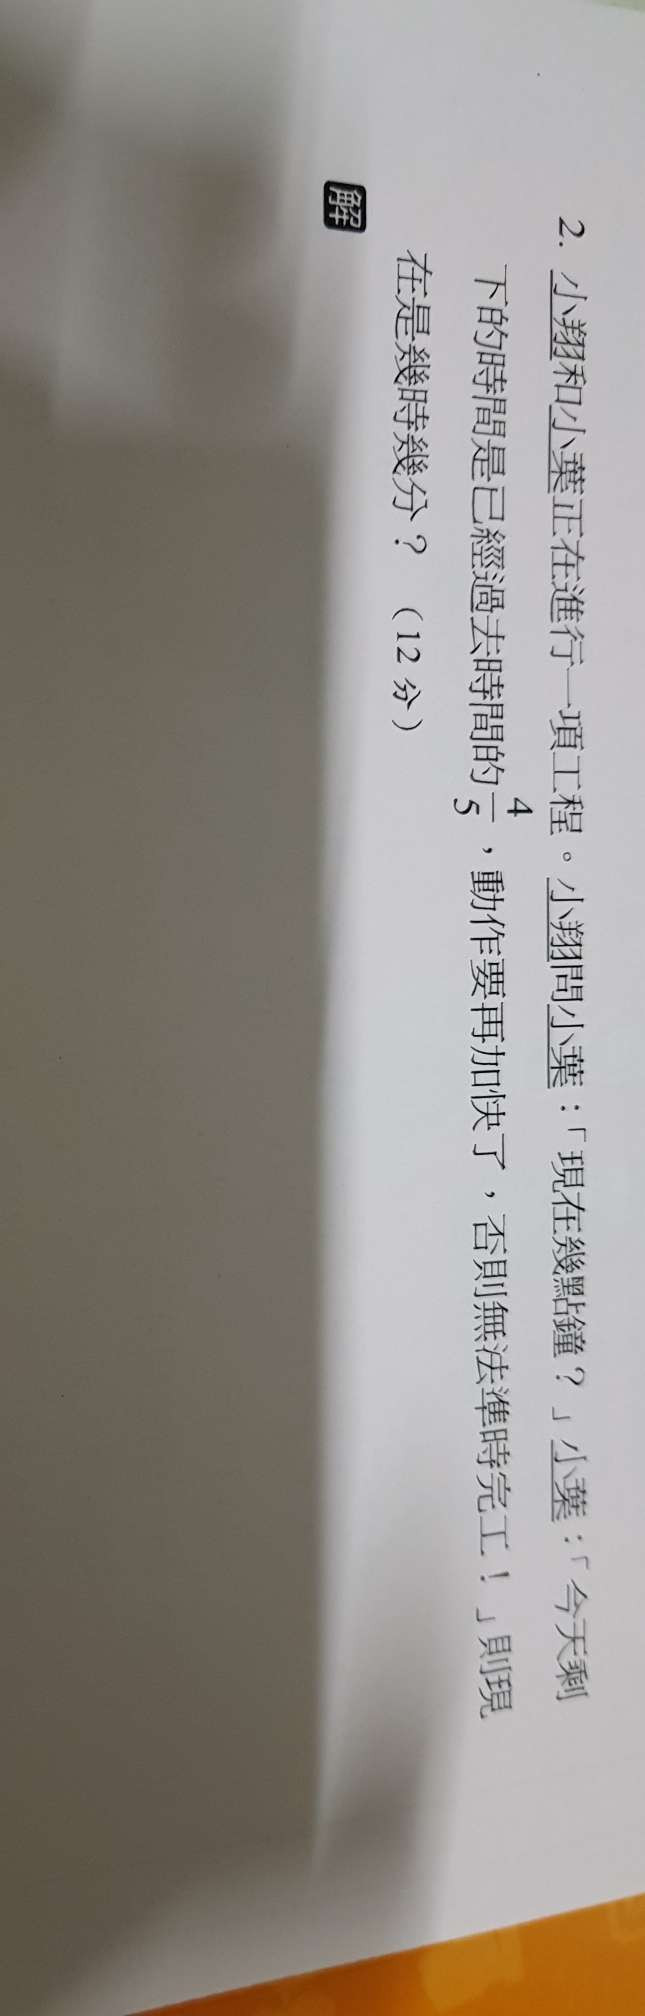 2. 小翔和小葉正在進行一項工程。小翔問小葉：「現在幾點鐘？」小葉：「今天剩
下的時間是已經過去時間的4/5，動作要再加快了，否則無法準時完工！」則現
在是幾時幾分？（12分）
解